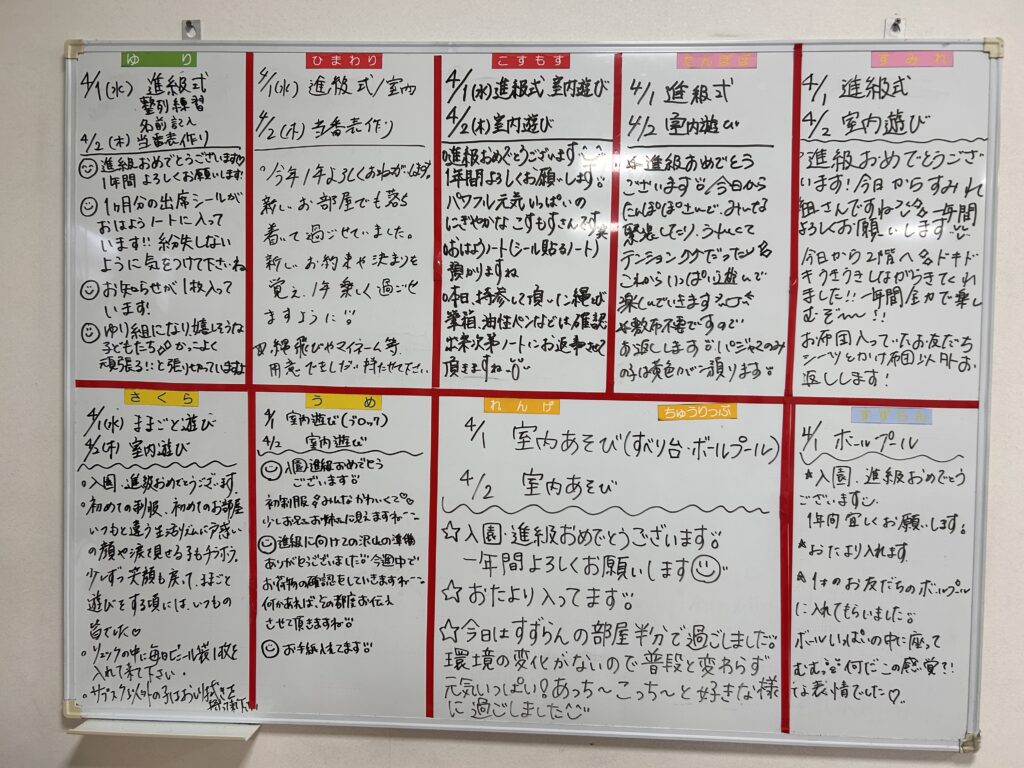 ゆり
4/1(水) 進級式
整列練習
名前記入
4/2(木) 当番表作り
進級おめでとうございます♡
1年間よろしくお願いします!
1ヵ月分の出席シールが
おはようノートに入って
います!! 紛失しない
ように気をつけて下さいね
お知らせが1枚入って
います!
ゆり組になり嬉しそうな
子どもたち かっこよく
頑張る!!と張り切っていますよ
ひまわり
4/1(水) 進級式/室内
4/2(木) 当番表作り
今年1年よろしくおねがいします。
新しいお部屋でも落ち
着いて過ごせていました。
新しいお約束や決まりを
覚え、1年楽しく過ごせ
ますように
縄飛びやマイネーム等、
用意でき次第持たせて下さい。
こすもす
4/1(水)進級式 室内遊び
4/2(木)室内遊び
進級おめでとうございます
1年間よろしくお願いします
パワフル元気いっぱいの
にぎやかなこすもすさんです☆
おはようノート(シール貼るノート)
預かりますね
本日、持参して頂いた縄とび
筆箱、油性ペンなどは確認
出来次第ノートにお返事させて
頂きますね
たんぽぽ
4/1 進級式
4/2 室内遊び
☆進級おめでとう
ございます 今日から
たんぽぽさんで、みんな
緊張したり、うれしくて
テンション
これからいっぱい遊んで
楽しんでいきます
☆敷布不要ですので
お返しします パジャマのみ
の子は黄色カバン預ります
すみれ
4/1 進級式
4/2 室内遊び
進級おめでとうござい
ます!今日からすみれ
組さんですね 一年間
よろしくお願いします
今日から2階へ ドキド
キうきうきしながらきてくれ
ました!! 一年間全力で楽し
むぞ〜!!
お布団入っていたお友だち
シーツとかけ布団以外お
返しします!
さくら
4/1(水) ままごと遊び
4/2(木) 室内遊び
入園・進級おめでとうございます。
初めての制服、初めてのお部屋
いつもと違う生活リズムに戸惑い
の顔や涙を見せる子もチラホラ。
少しずつ笑顔も戻って、ままごと
遊びをする頃には、いつもの
皆でした♡
リュックの中に毎日ビニール袋1枚を
入れて来て下さい。
うめ
4/1 室内遊び(ブロック)
4/2 室内遊び
入園、進級おめでとう
ございます
初制服 みんなかわいくて
少しお兄さんお姉さんに見えますね〜
進級に向けての沢山の準備
ありがとうございました 今週中で
お荷物の確認をしていきますね〜
何かあれば、その都度お伝え
させて頂きますね
お手紙入れてます
れんげ
ちゅうりっぷ
4/1 室内あそび(すべり台・ボールプール)
4/2 室内あそび
☆入園・進級おめでとうございます。
一年間よろしくお願いします
☆おたより入ってます
☆今日はすずらんの部屋半分で過ごしました
環境の変化がないので普段と変わらず
元気いっぱい!あっち〜こっち〜と好きな様
に過ごしました
すずらん
4/1 ボールプール
★入園、進級おめでとう
ございます
1年間宜しくお願いします。
★おたより入れます
★1才のお友だちのボールプール
に入れてもらいました
ボールいっぱいの中に座って
むむ 何だこの感覚?!
な表情でした♡。